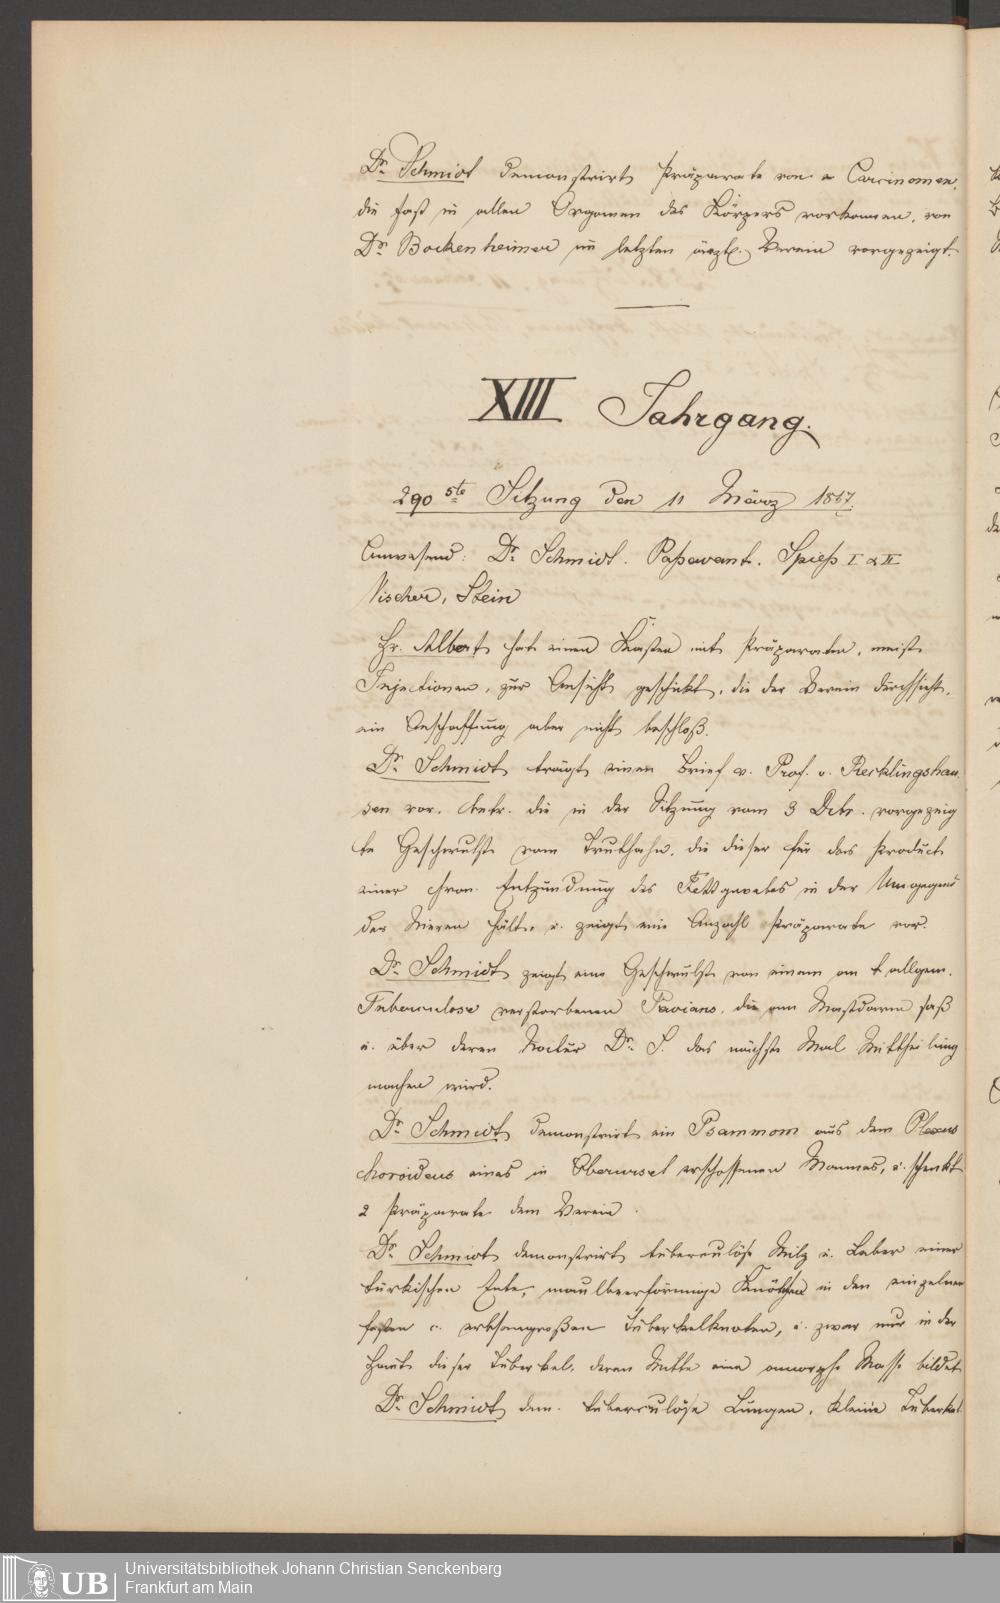 Dr. Schmidt demonstrirt Präparate von Carcinomen,
die fast in allen Organen des Körpers vorkamen, von
Dr. Bockenheimer im letzten ärztl. Verein vorgezeigt.
XIII Jahrgang.
290ste Sitzung den 11 März 1867.
Anwesend: Dr. Schmidt. Paßavant. Spieß I & II
Vischer, Stein
Hr. Albert hat einen Kasten mit Präparaten, meist
Injectionen, zur Ansicht geschickt, die der Verein durchsieht,
ein Anschaffung aber nicht beschloß.
Dr. Schmidt trägt einen Brief v. Prof. v. Recklingshau
sen vor. betr. die in der Sitzung vom 3 Dcbr. vorgezeig
te Geschwulst vom Truthahn, die dieser für das Product
einer chron. Entzündung des Fettgewebes in der Umgegend
der Nieren hält, u. zeigt eine Anzahl Präparate vor.
Dr. Schmidt zeigt eine Geschwulst von einem an allgem.
Tuberculose verstorbenen Pavians, die am Mastdarm saß
u. über deren Natur Dr. S. das nächste Mal Mittheilung
machen wird.
Dr. Schmidt demonstrirt ein Psammom aus dem Plexus
choroideus eines in Oberursel erschossenen Mannes, u. schenkt
2 Präparate dem Verein.
Dr. Schmidt demonstrirt tuberculöse Milz u. Leber einer
türkischen Ente, maulbeerförmige Knötchen in den einzelnen
festen c. erbsengroßen Tuberkelknoten, u. zwar nur in der
Haut dieser Tuberkel, deren Mitte eine amorphe Masse bildet
Dr. Schmidt dem. tuberculöse Lungen, kleine Tuberkel
Universitätsbibliothek Johann Christian Senckenberg
Frankfurt am Main
UB